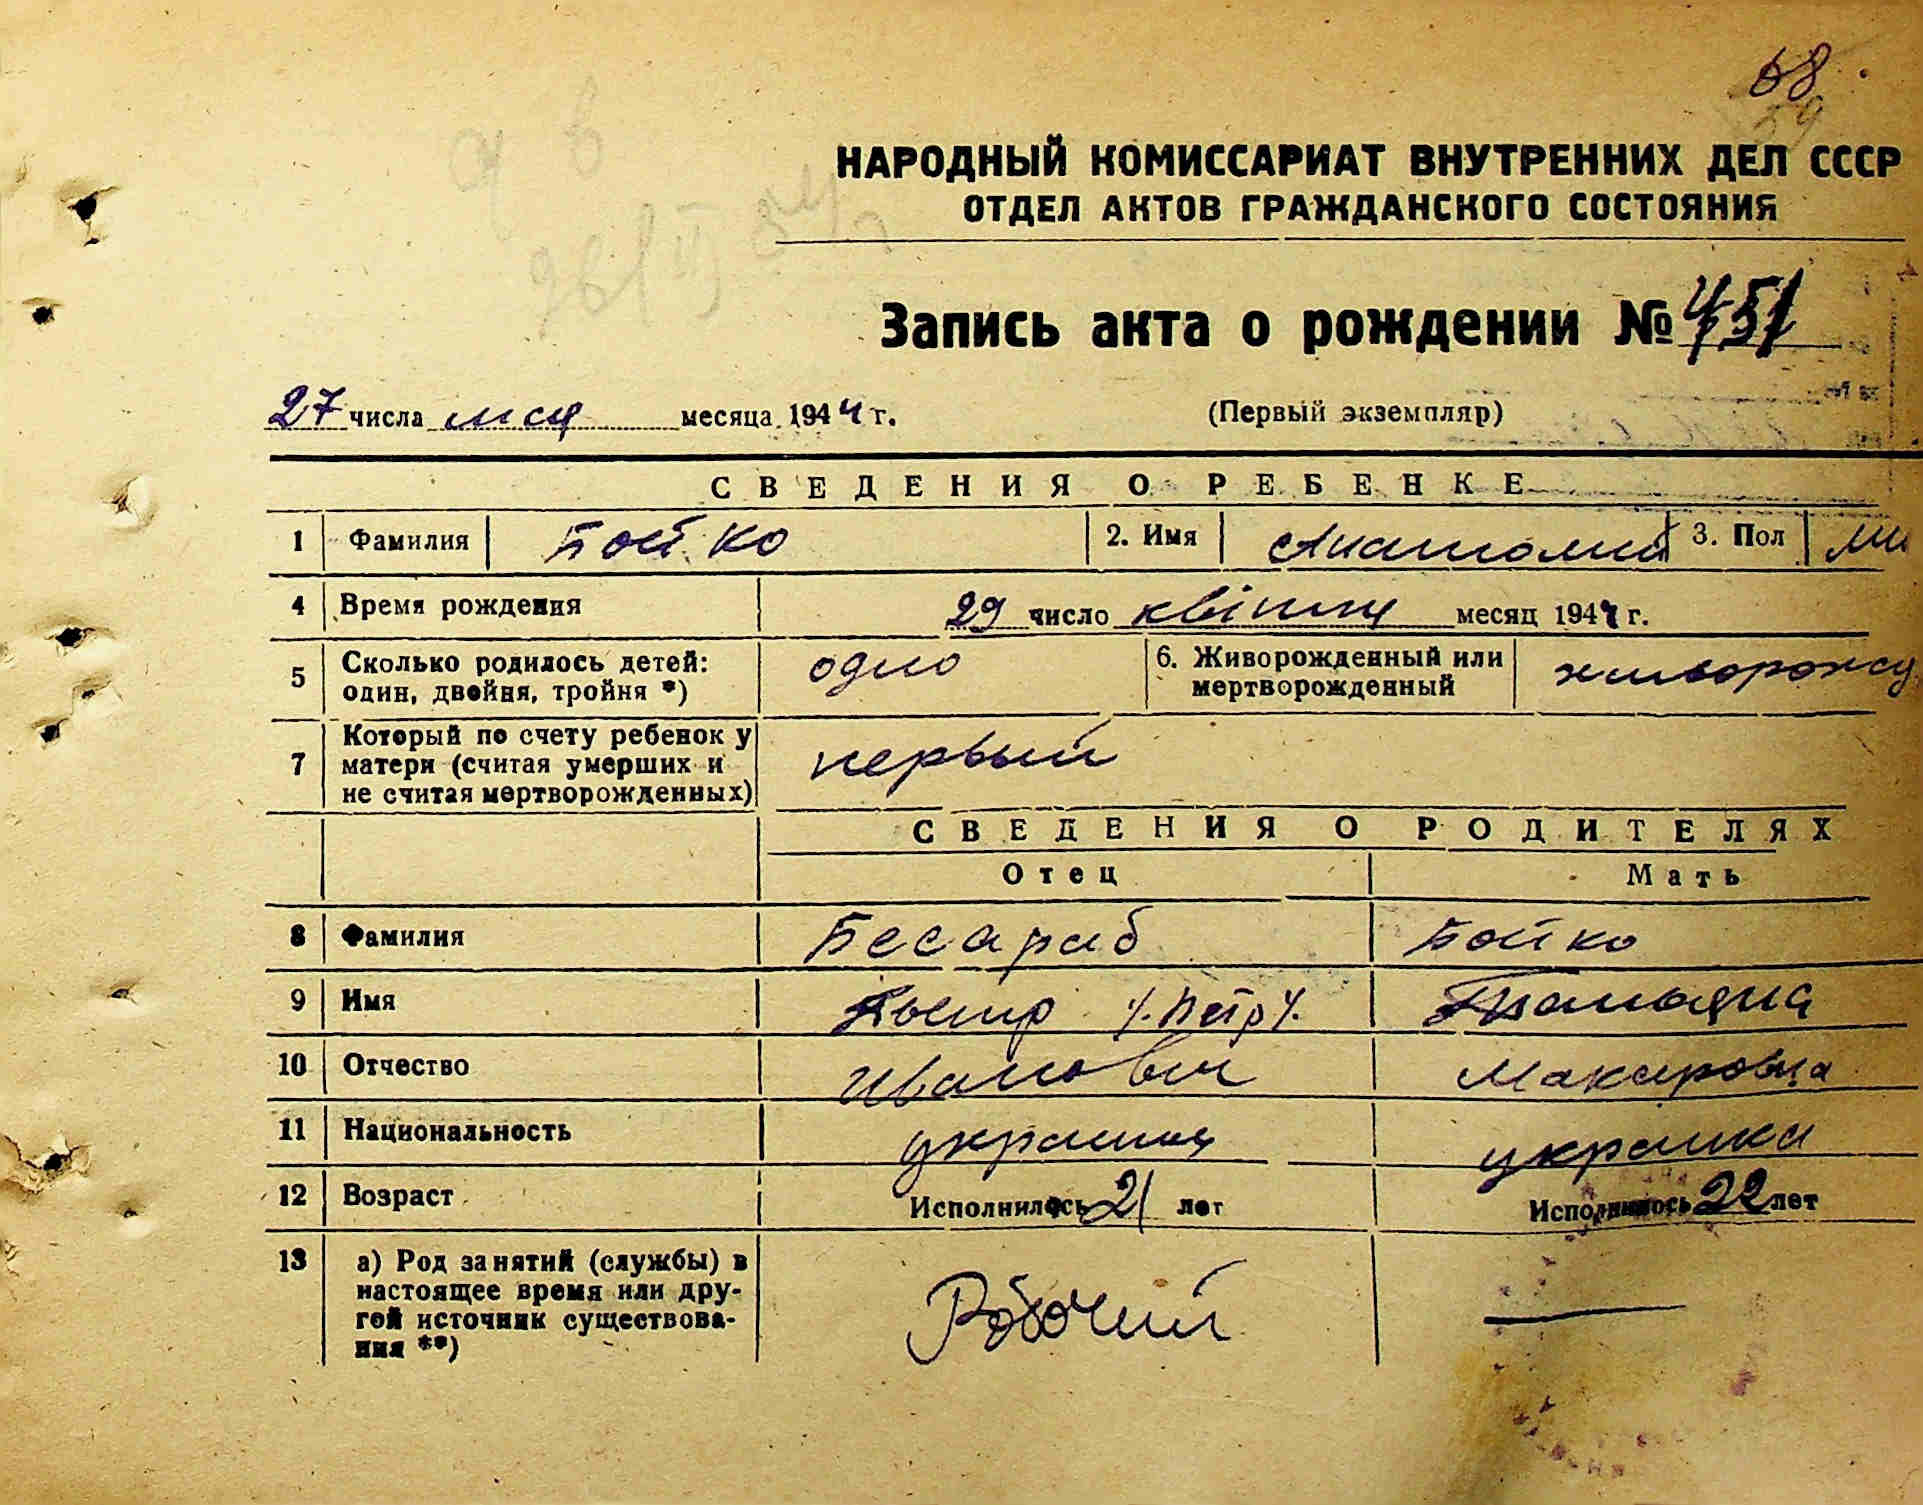 68
29
НАРОДНЫЙ КОМИССАРИАТ ВНУТРЕННИХ ДЕЛ СССР
ОТДЕЛ АКТОВ ГРАЖДАНСКОГО СОСТОЯНИЯ
Запись акта о рождении № 451
27 числа мая месяца 1944 г. (Первый экземпляр)
СВЕДЕНИЯ О РЕБЕНКЕ
1 Фамилия Бойко 2. Имя Анатолий 3. Пол
4 Время рождения 29 число квітня месяц 1944 г.
5 Сколько родилось детей: один, двойня, тройня *) одно 6. Живорожденный или мертворожденный живорожд
7 Который по счету ребенок у матери (считая умерших и не считая мертворожденных) первый
СВЕДЕНИЯ О РОДИТЕЛЯХ
Отец Мать
8 Фамилия Бесараб Бойко
9 Имя Пьотр /.Петр/. 
10 Отчество Иванович Макаровна
11 Национальность украинец украинка
12 Возраст Исполнилось 21 лет Исполнилось 22 лет
13 а) Род занятий (службы) в настоящее время или дру-
гой источник существова-
ния **) Робочий —